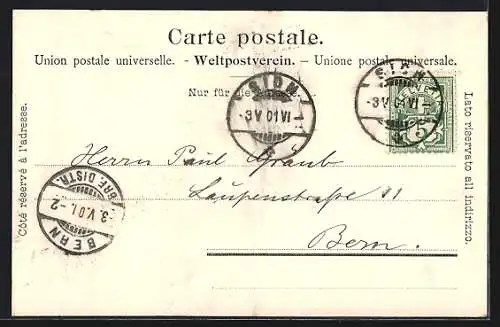 Carte postale.
Union postale universelle. - Weltpostverein. - Unione postale universale.
Nur für die
SION
-3 V 01 VI
SION
-3 V 01 VI-
Côté réservé à l'adresse.
Lato riservato all indirizzo.
Herrn Paul Graub
Laupenstrasse 11
Bern.
BERN
3. V. 01. -2
BRF. DISTR.